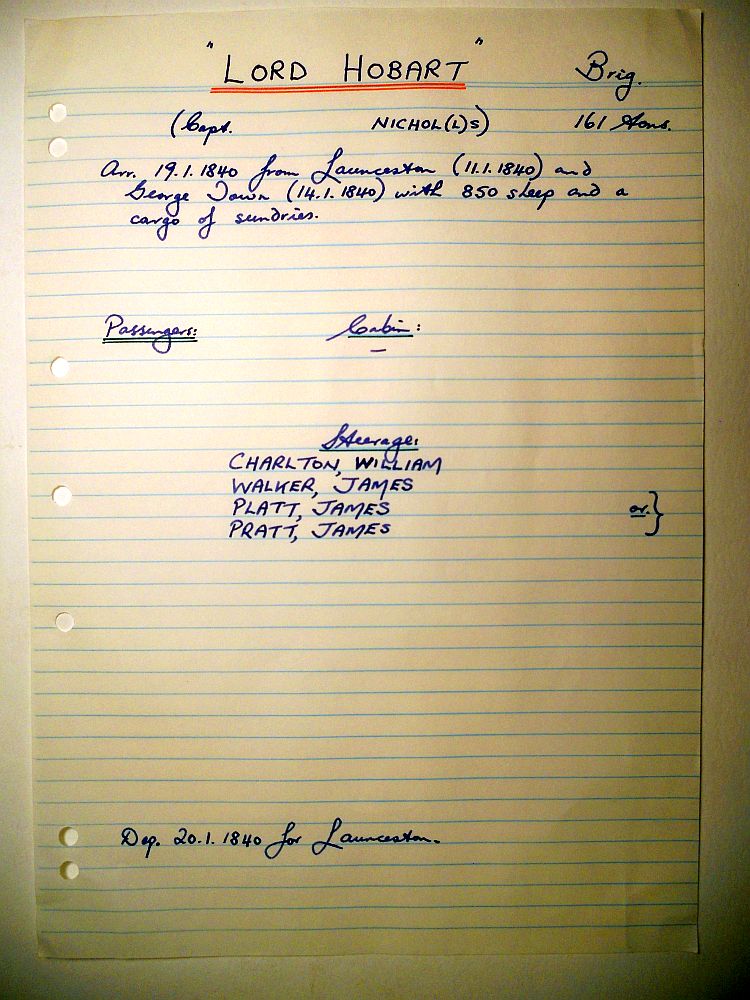 "LORD HOBART" Brig.
(Capt. NICHOL(L)S) 161 tons.
Arr. 19.1.1840 from Launceston (11.1.1840) and
George Town (14.1.1840) with 850 sheep and a
cargo of sundries.
Passengers: Cabin:
—
Steerage:
CHARLTON, WILLIAM
WALKER, JAMES
PLATT, JAMES or. }
PRATT, JAMES
Dep. 20.1.1840 for Launceston.